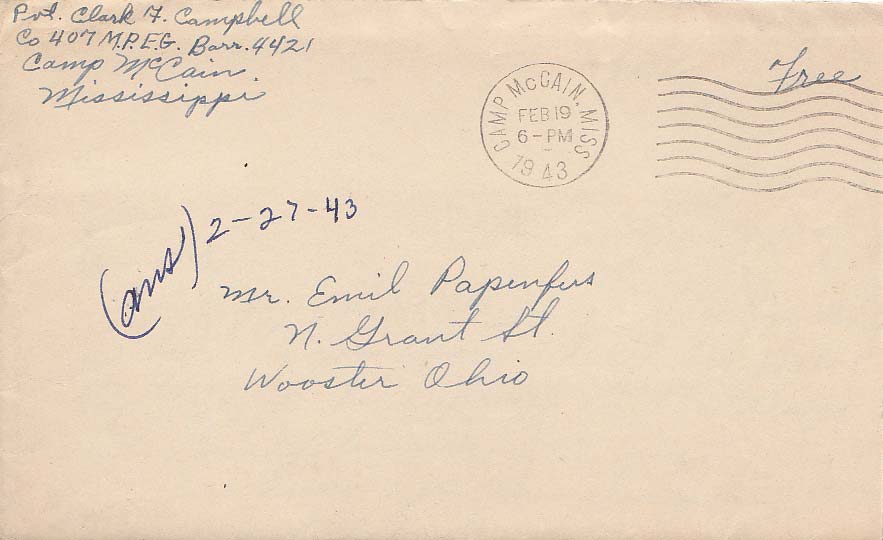 Pvt. Clark F. Campbell
Co 407 M.P.E.G. Barr. 4421
Camp McCain
Mississippi
Free
CAMP McCAIN, MISS
FEB 19
6-PM
1943
(ans) 2-27-43
Mr. Emil Papenfus
N. Grant St.
Wooster Ohio